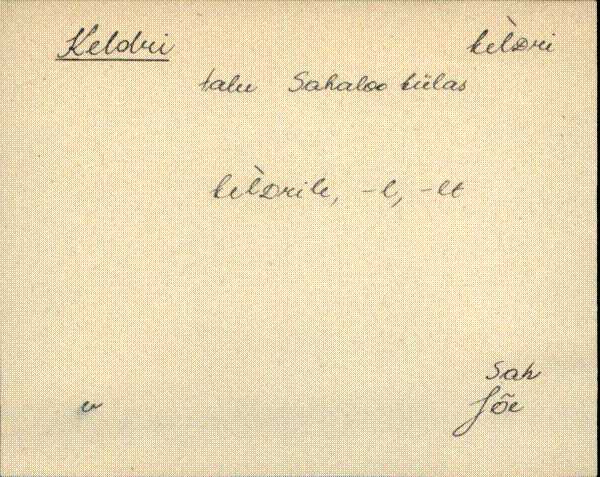 Keldri kèlDri
talu Sahaloo külas
kèlDrile, -l, -lt
Sah
Jõe
v